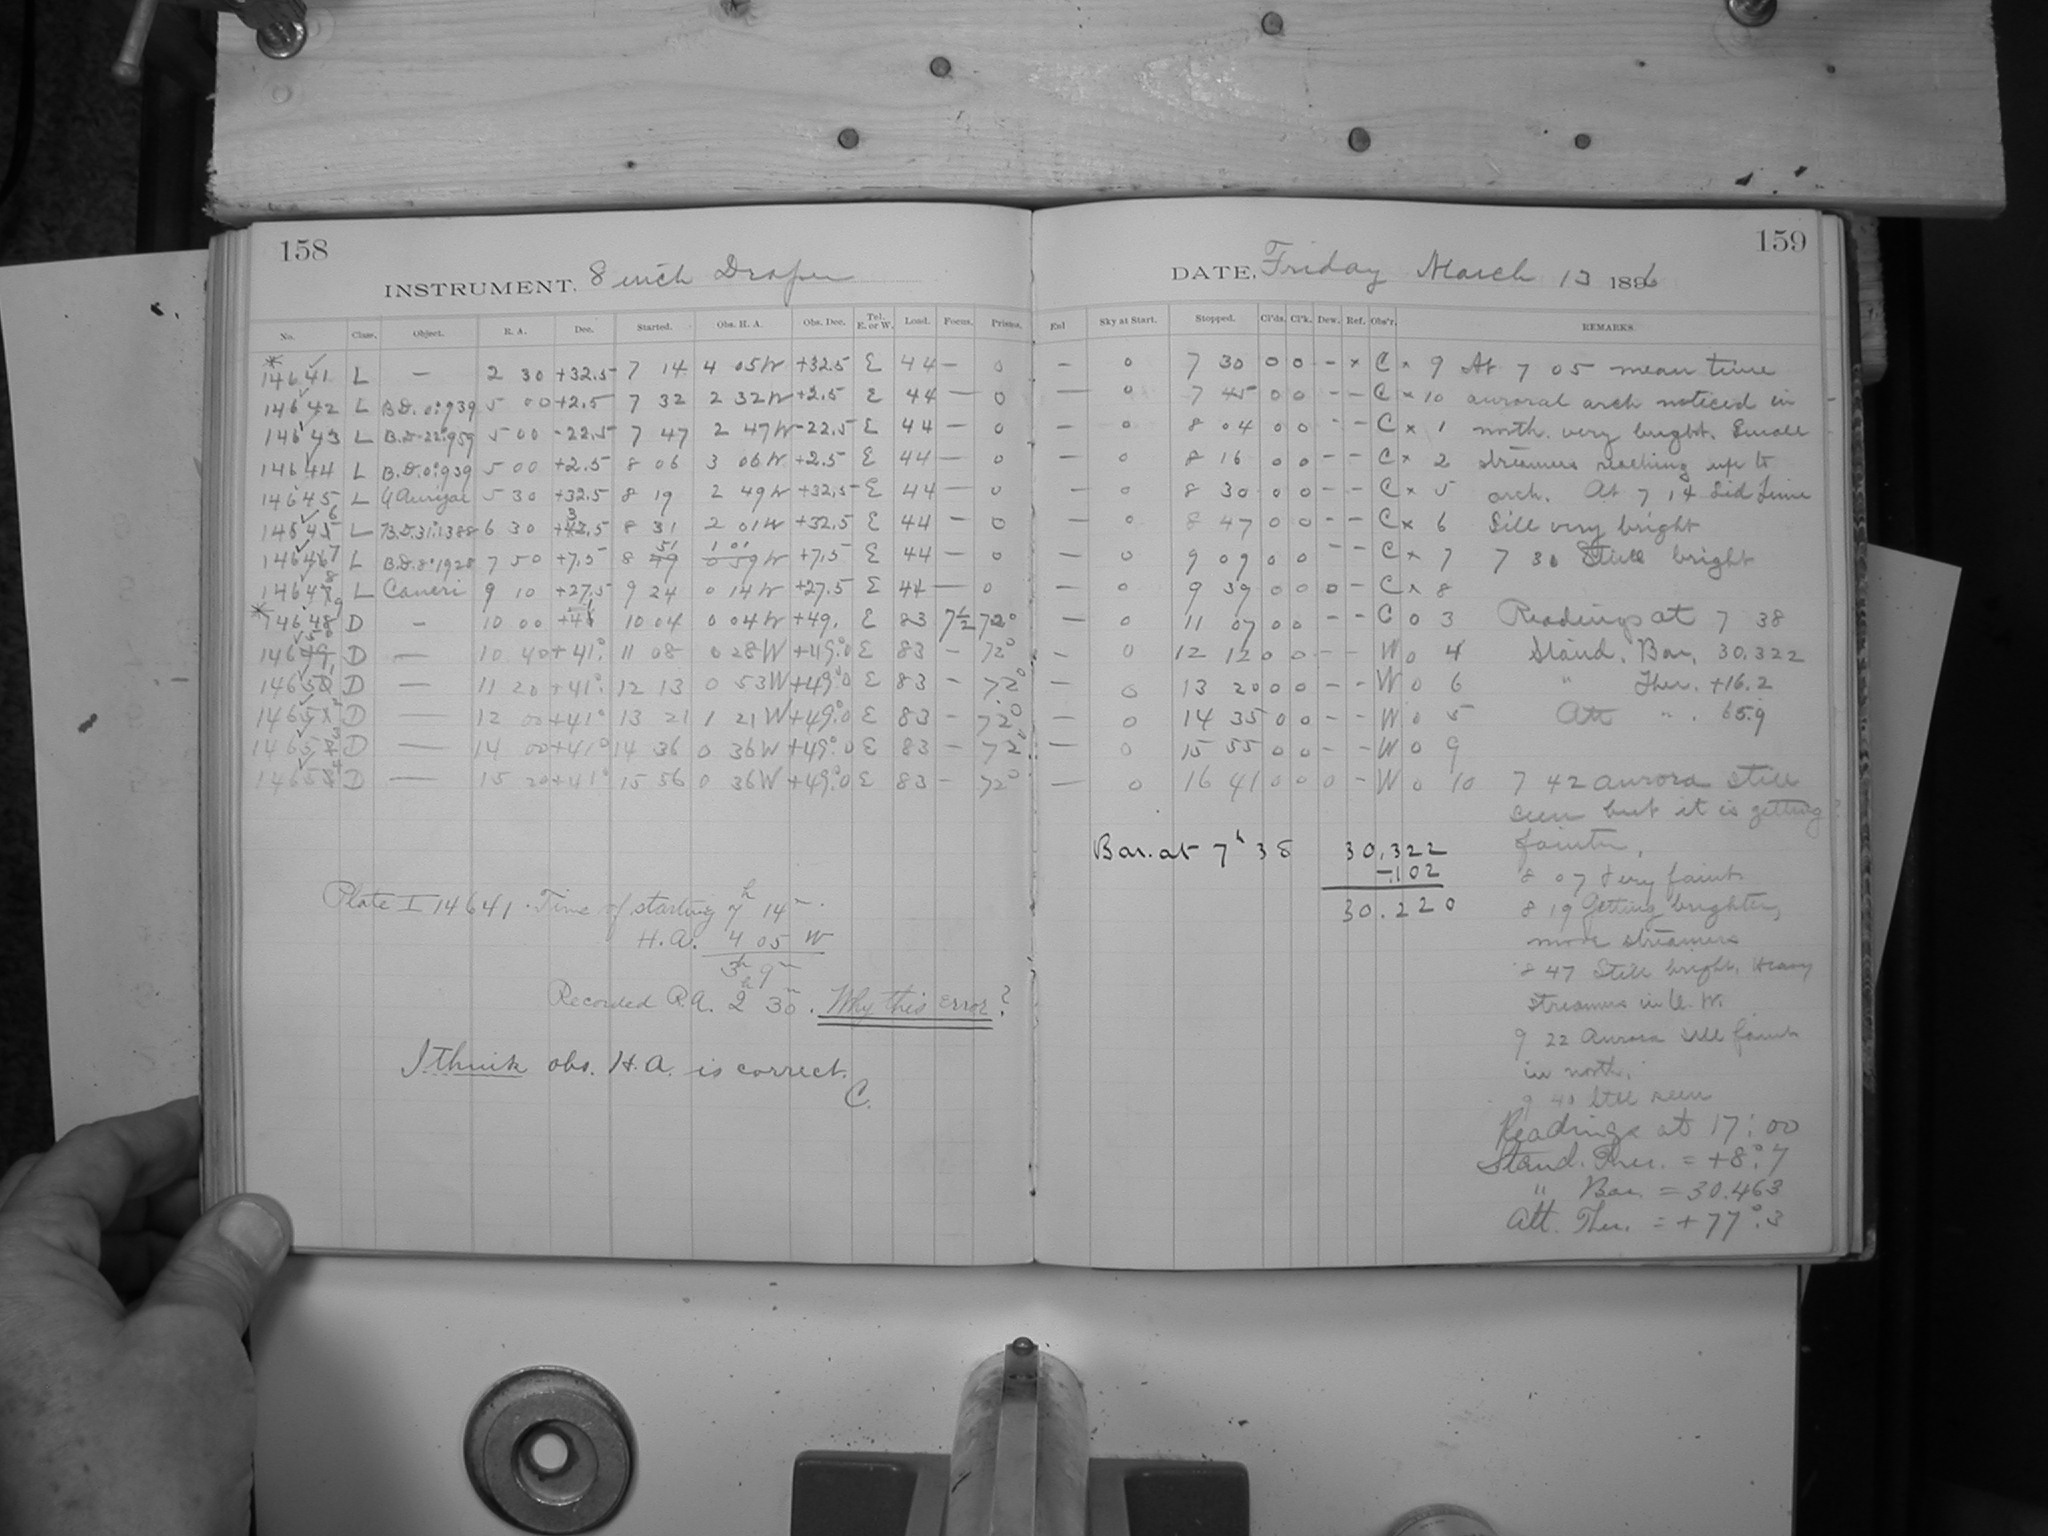 158
INSTRUMENT. 8 inch Draper
No. Class. Object. R. A. Dec. Started. Obs. H. A. Obs. Dec. Tel. E. or W. Load. Focus. Prisms.
14641 L — 2 30 +32.5 7 14 4 05 W +32.5 E 44 — 0
14642 L B.D. 0°.939 5 00 +2.5 7 32 2 32 W +2.5 E 44 — 0
14643 L B.D.-22°.959 5 00 -22.5 7 47 2 47 W -22.5 E 44 — 0
14644 L B.D. 0°.939 5 00 +2.5 8 06 3 06 W +2.5 E 44 — 0
14645 L Aurigae 5 30 +32.5 8 19 2 49 W +32.5 E 44 — 0
14646 L B.D. 31°.1388 6 30 +32.5 8 31 2 01 W +32.5 E 44 — 0
14647 L B.D. 8°.1928 7 50 +7.5 8 51 1 01 W +7.5 E 44 — 0
14648 L Cancri 9 10 +27.5 9 24 0 14 W +27.5 E 44 — 0
14649 D — 10 00 +41 10 04 0 04 W +49. E 83 7½ 72°
14650 D — 10 40 +41° 11 08 0 28 W +49°.0 E 83 - 72°
14651 D — 11 20 +41° 12 13 0 53 W +49°.0 E 83 - 72°
14652 D — 12 00 +41° 13 21 1 21 W +49°.0 E 83 - 72°
14653 D — 14 00 +41° 14 36 0 36 W +49°.0 E 83 - 72°
14654 D — 15 20 +41° 15 56 0 36 W +49°.0 E 83 - 72°
Plate I 14641. Time of starting 7h 14m.
H.A. 4 05 W
3h 9m
Recorded R.A. 2h 30m. Why this error?
I think obs. H.A. is correct.
C.
159
DATE, Friday March 13 1896
Enl Sky at Start. Stopped. Cl'ds. Cl'k. Dew. Ref. Obs'r. REMARKS.
— 0 7 30 0 0 - × C × 9 At 7 05 mean time
— 0 7 45 0 0 - - C × 10 auroral arch noticed in
— 0 8 04 0 0 - - C × 1 north. very bright. Small
— 0 8 16 0 0 - - C × 2 streamers reaching up to
— 0 8 30 0 0 - - C × 5 arch. At 7 14 Sid time
— 0 8 47 0 0 - - C × 6 Still very bright
— 0 9 09 0 0 - - C × 7 7 30 Still bright
— 0 9 39 0 0 0 - C × 8
— 0 11 07 0 0 - - C 0 3 Readings at 7 38
— 0 12 12 0 0 - - W 0 4 Stand. Bar. 30.322
— 0 13 20 0 0 - - W 0 6 " Ther. +16.2
— 0 14 35 0 0 - - W 0 5 Att " . 65.9
— 0 15 55 0 0 - - W 0 9
— 0 16 41 0 0 0 - W 0 10 7 42 aurora still
seen but it is getting
fainter.
Bar. at 7h 38 30.322
-.102
30.220
8 07 Very faint
8 19 Getting brighter,
more streamers
8 47 Still bright. Heavy
streamers in N. W.
9 22 Aurora still faint
in north.
9 40 Still seen
Readings at 17:00
Stand. Ther. = +8°.7
" Bar. = 30.463
Att. Ther. = +77°.3